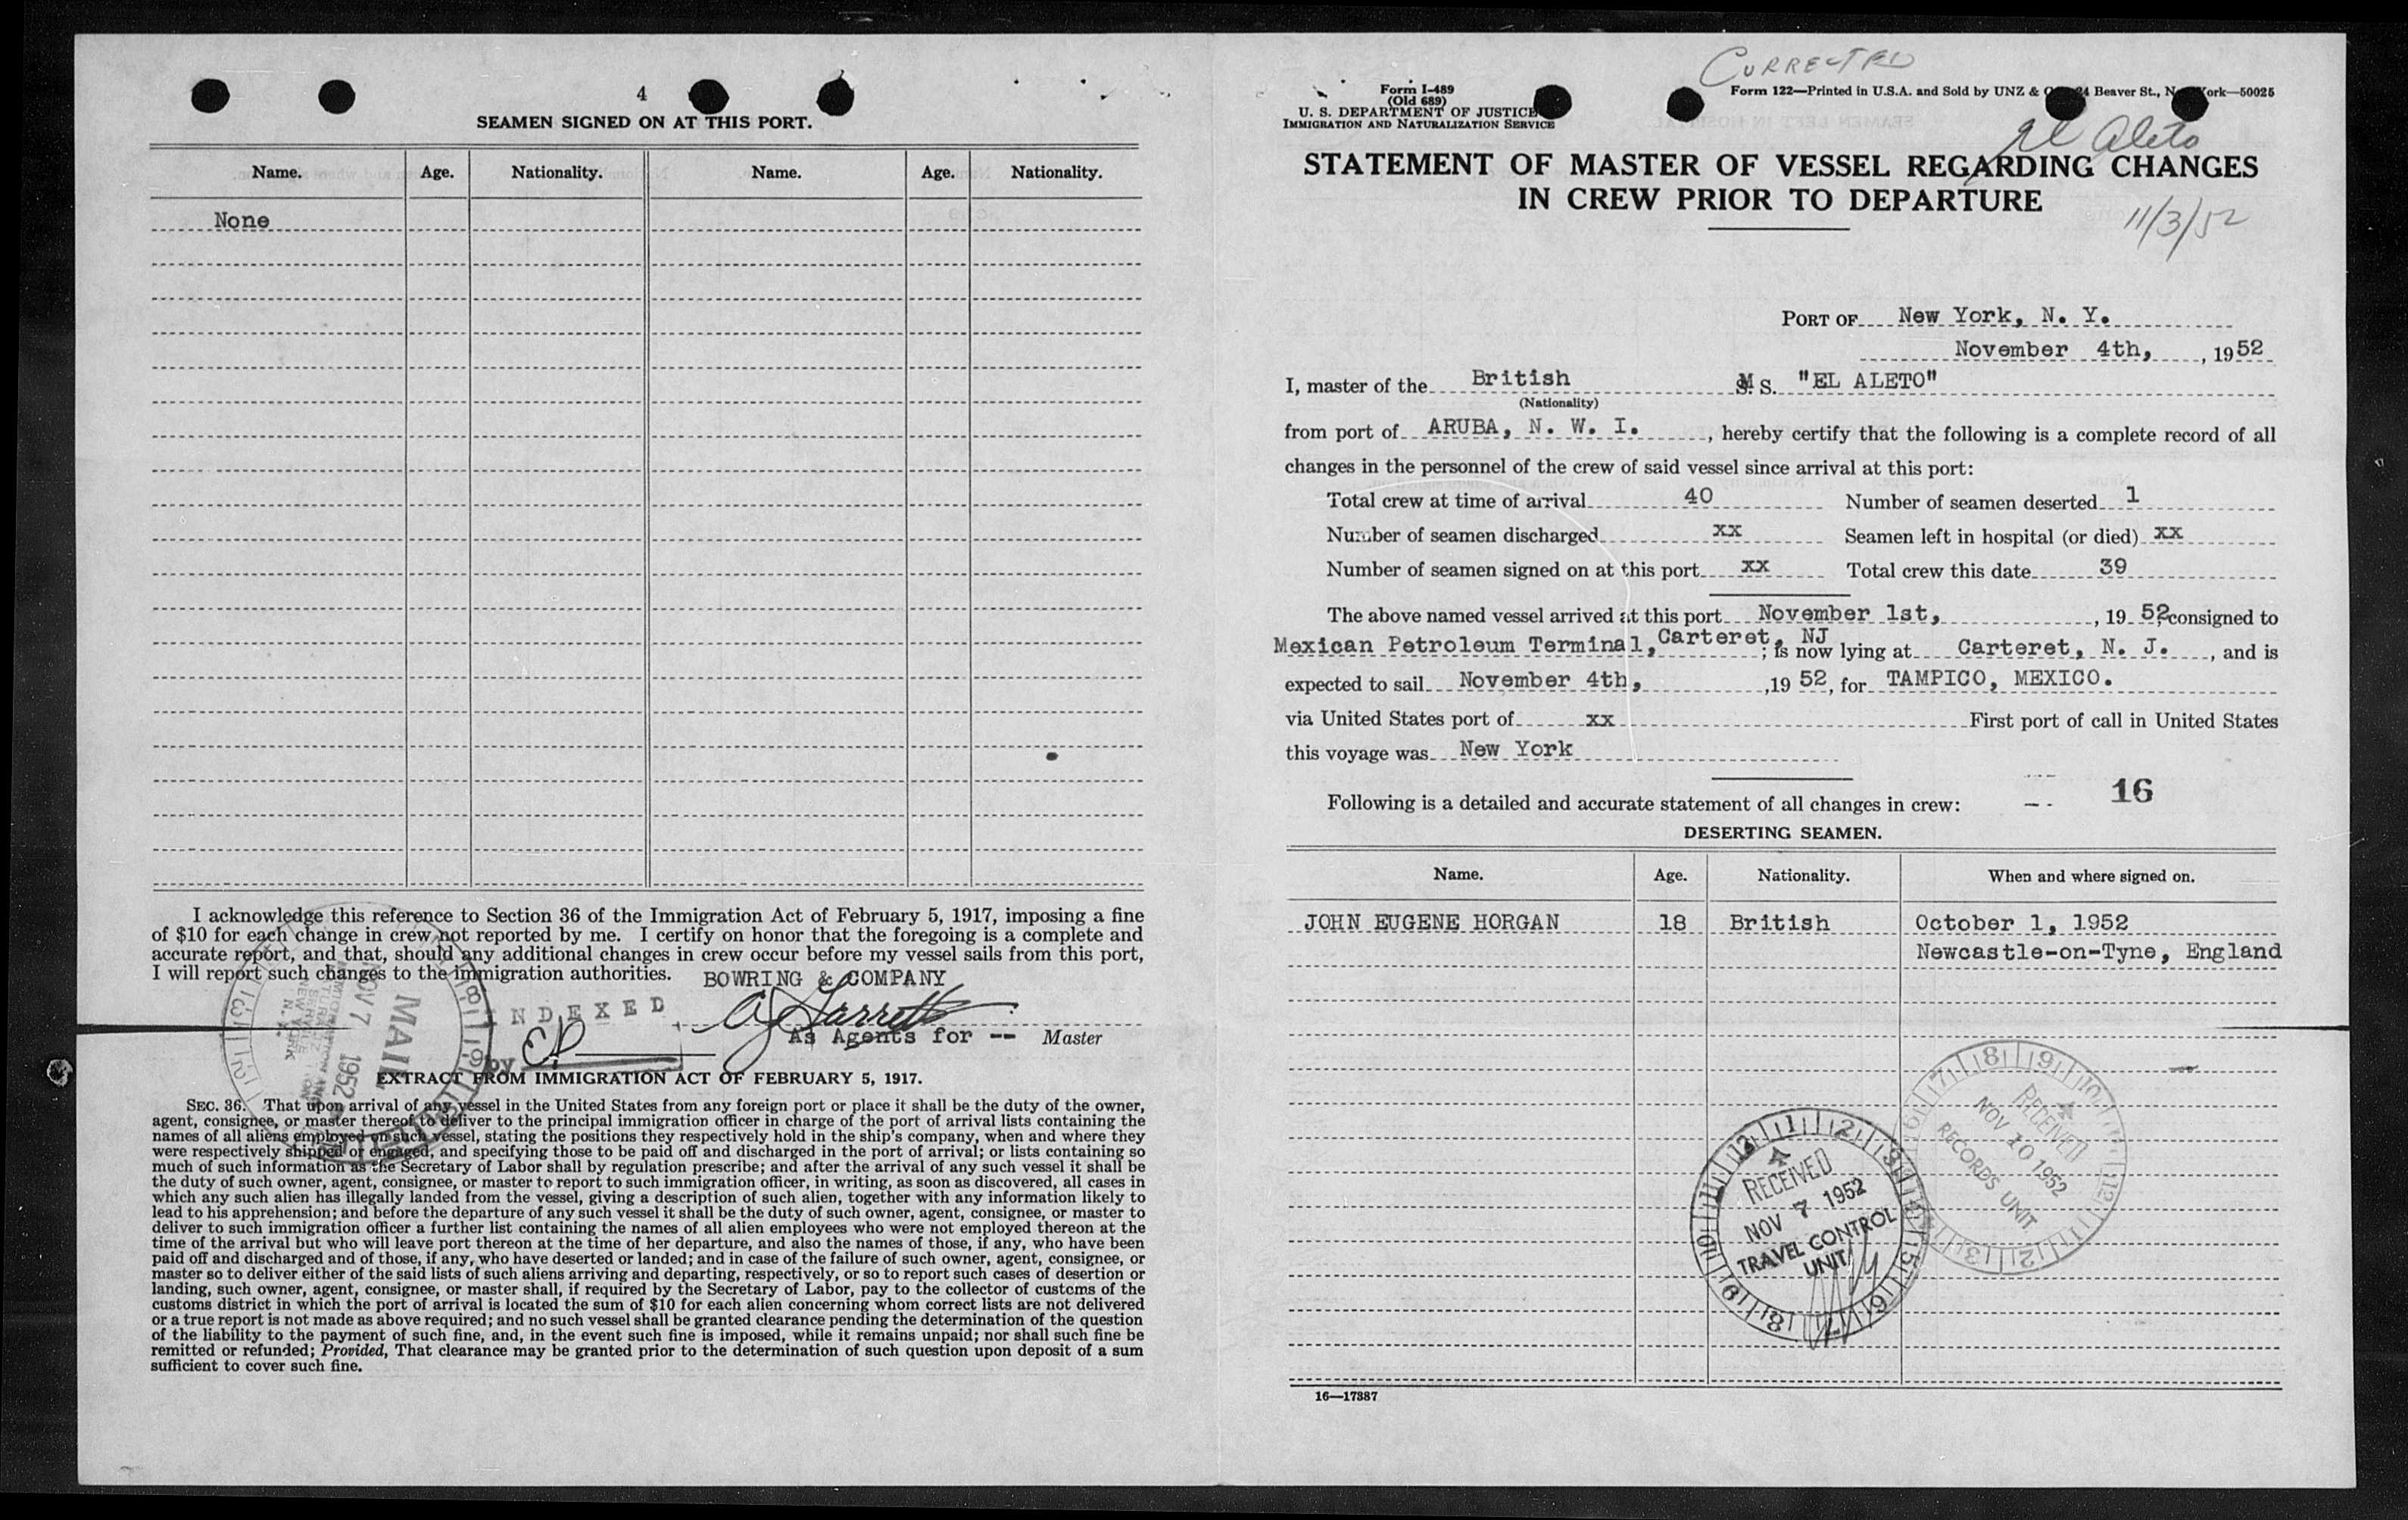 4
SEAMEN SIGNED ON AT THIS PORT.
Name. Age. Nationality. Name. Age. Nationality.
None
I acknowledge this reference to Section 36 of the Immigration Act of February 5, 1917, imposing a fine
of $10 for each change in crew not reported by me. I certify on honor that the foregoing is a complete and
accurate report, and that, should any additional changes in crew occur before my vessel sails from this port,
I will report such changes to the immigration authorities. BOWRING & COMPANY
INDEXED
As Agents for -- Master
by
MAIL
NOV 7 1952
EXTRACT FROM IMMIGRATION ACT OF FEBRUARY 5, 1917.
SEC. 36. That upon arrival of any vessel in the United States from any foreign port or place it shall be the duty of the owner,
agent, consignee, or master thereof to deliver to the principal immigration officer in charge of the port of arrival lists containing the
names of all aliens employed on such vessel, stating the positions they respectively hold in the ship's company, when and where they
were respectively shipped or engaged, and specifying those to be paid off and discharged in the port of arrival; or lists containing so
much of such information as the Secretary of Labor shall by regulation prescribe; and after the arrival of any such vessel it shall be
the duty of such owner, agent, consignee, or master to report to such immigration officer, in writing, as soon as discovered, all cases in
which any such alien has illegally landed from the vessel, giving a description of such alien, together with any information likely to
lead to his apprehension; and before the departure of any such vessel it shall be the duty of such owner, agent, consignee, or master to
deliver to such immigration officer a further list containing the names of all alien employees who were not employed thereon at the
time of the arrival but who will leave port thereon at the time of her departure, and also the names of those, if any, who have been
paid off and discharged and of those, if any, who have deserted or landed; and in case of the failure of such owner, agent, consignee, or
master so to deliver either of the said lists of such aliens arriving and departing, respectively, or so to report such cases of desertion or
landing, such owner, agent, consignee, or master shall, if required by the Secretary of Labor, pay to the collector of customs of the
customs district in which the port of arrival is located the sum of $10 for each alien concerning whom correct lists are not delivered
or a true report is not made as above required; and no such vessel shall be granted clearance pending the determination of the question
of the liability to the payment of such fine, and, in the event such fine is imposed, while it remains unpaid; nor shall such fine be
remitted or refunded; Provided, That clearance may be granted prior to the determination of such question upon deposit of a sum
sufficient to cover such fine.
CORRECTED
Form I-489
(Old 689)
U. S. DEPARTMENT OF JUSTICE
IMMIGRATION AND NATURALIZATION SERVICE
Form 122—Printed in U.S.A. and Sold by UNZ & Beaver St., York—50025
El Aleto
STATEMENT OF MASTER OF VESSEL REGARDING CHANGES
IN CREW PRIOR TO DEPARTURE
11/3/52
PORT OF New York, N. Y.
November 4th, , 1952
I, master of the British M S. "EL ALETO"
(Nationality)
from port of ARUBA, N. W. I. , hereby certify that the following is a complete record of all
changes in the personnel of the crew of said vessel since arrival at this port:
Total crew at time of arrival 40 Number of seamen deserted 1
Number of seamen discharged xx Seamen left in hospital (or died) xx
Number of seamen signed on at this port xx Total crew this date 39
The above named vessel arrived at this port November 1st, , 19 52, consigned to
Mexican Petroleum Terminal, Carteret, NJ ; is now lying at Carteret, N. J. , and is
expected to sail November 4th, ,19 52, for TAMPICO, MEXICO.
via United States port of xx First port of call in United States
this voyage was New York
16
Following is a detailed and accurate statement of all changes in crew:
DESERTING SEAMEN.
Name. Age. Nationality. When and where signed on.
JOHN EUGENE HORGAN 18 British October 1, 1952
Newcastle-on-Tyne, England
RECEIVED
NOV 10 1952
RECORDS UNIT
RECEIVED
NOV 7 1952
TRAVEL CONTROL
UNIT
16—17387